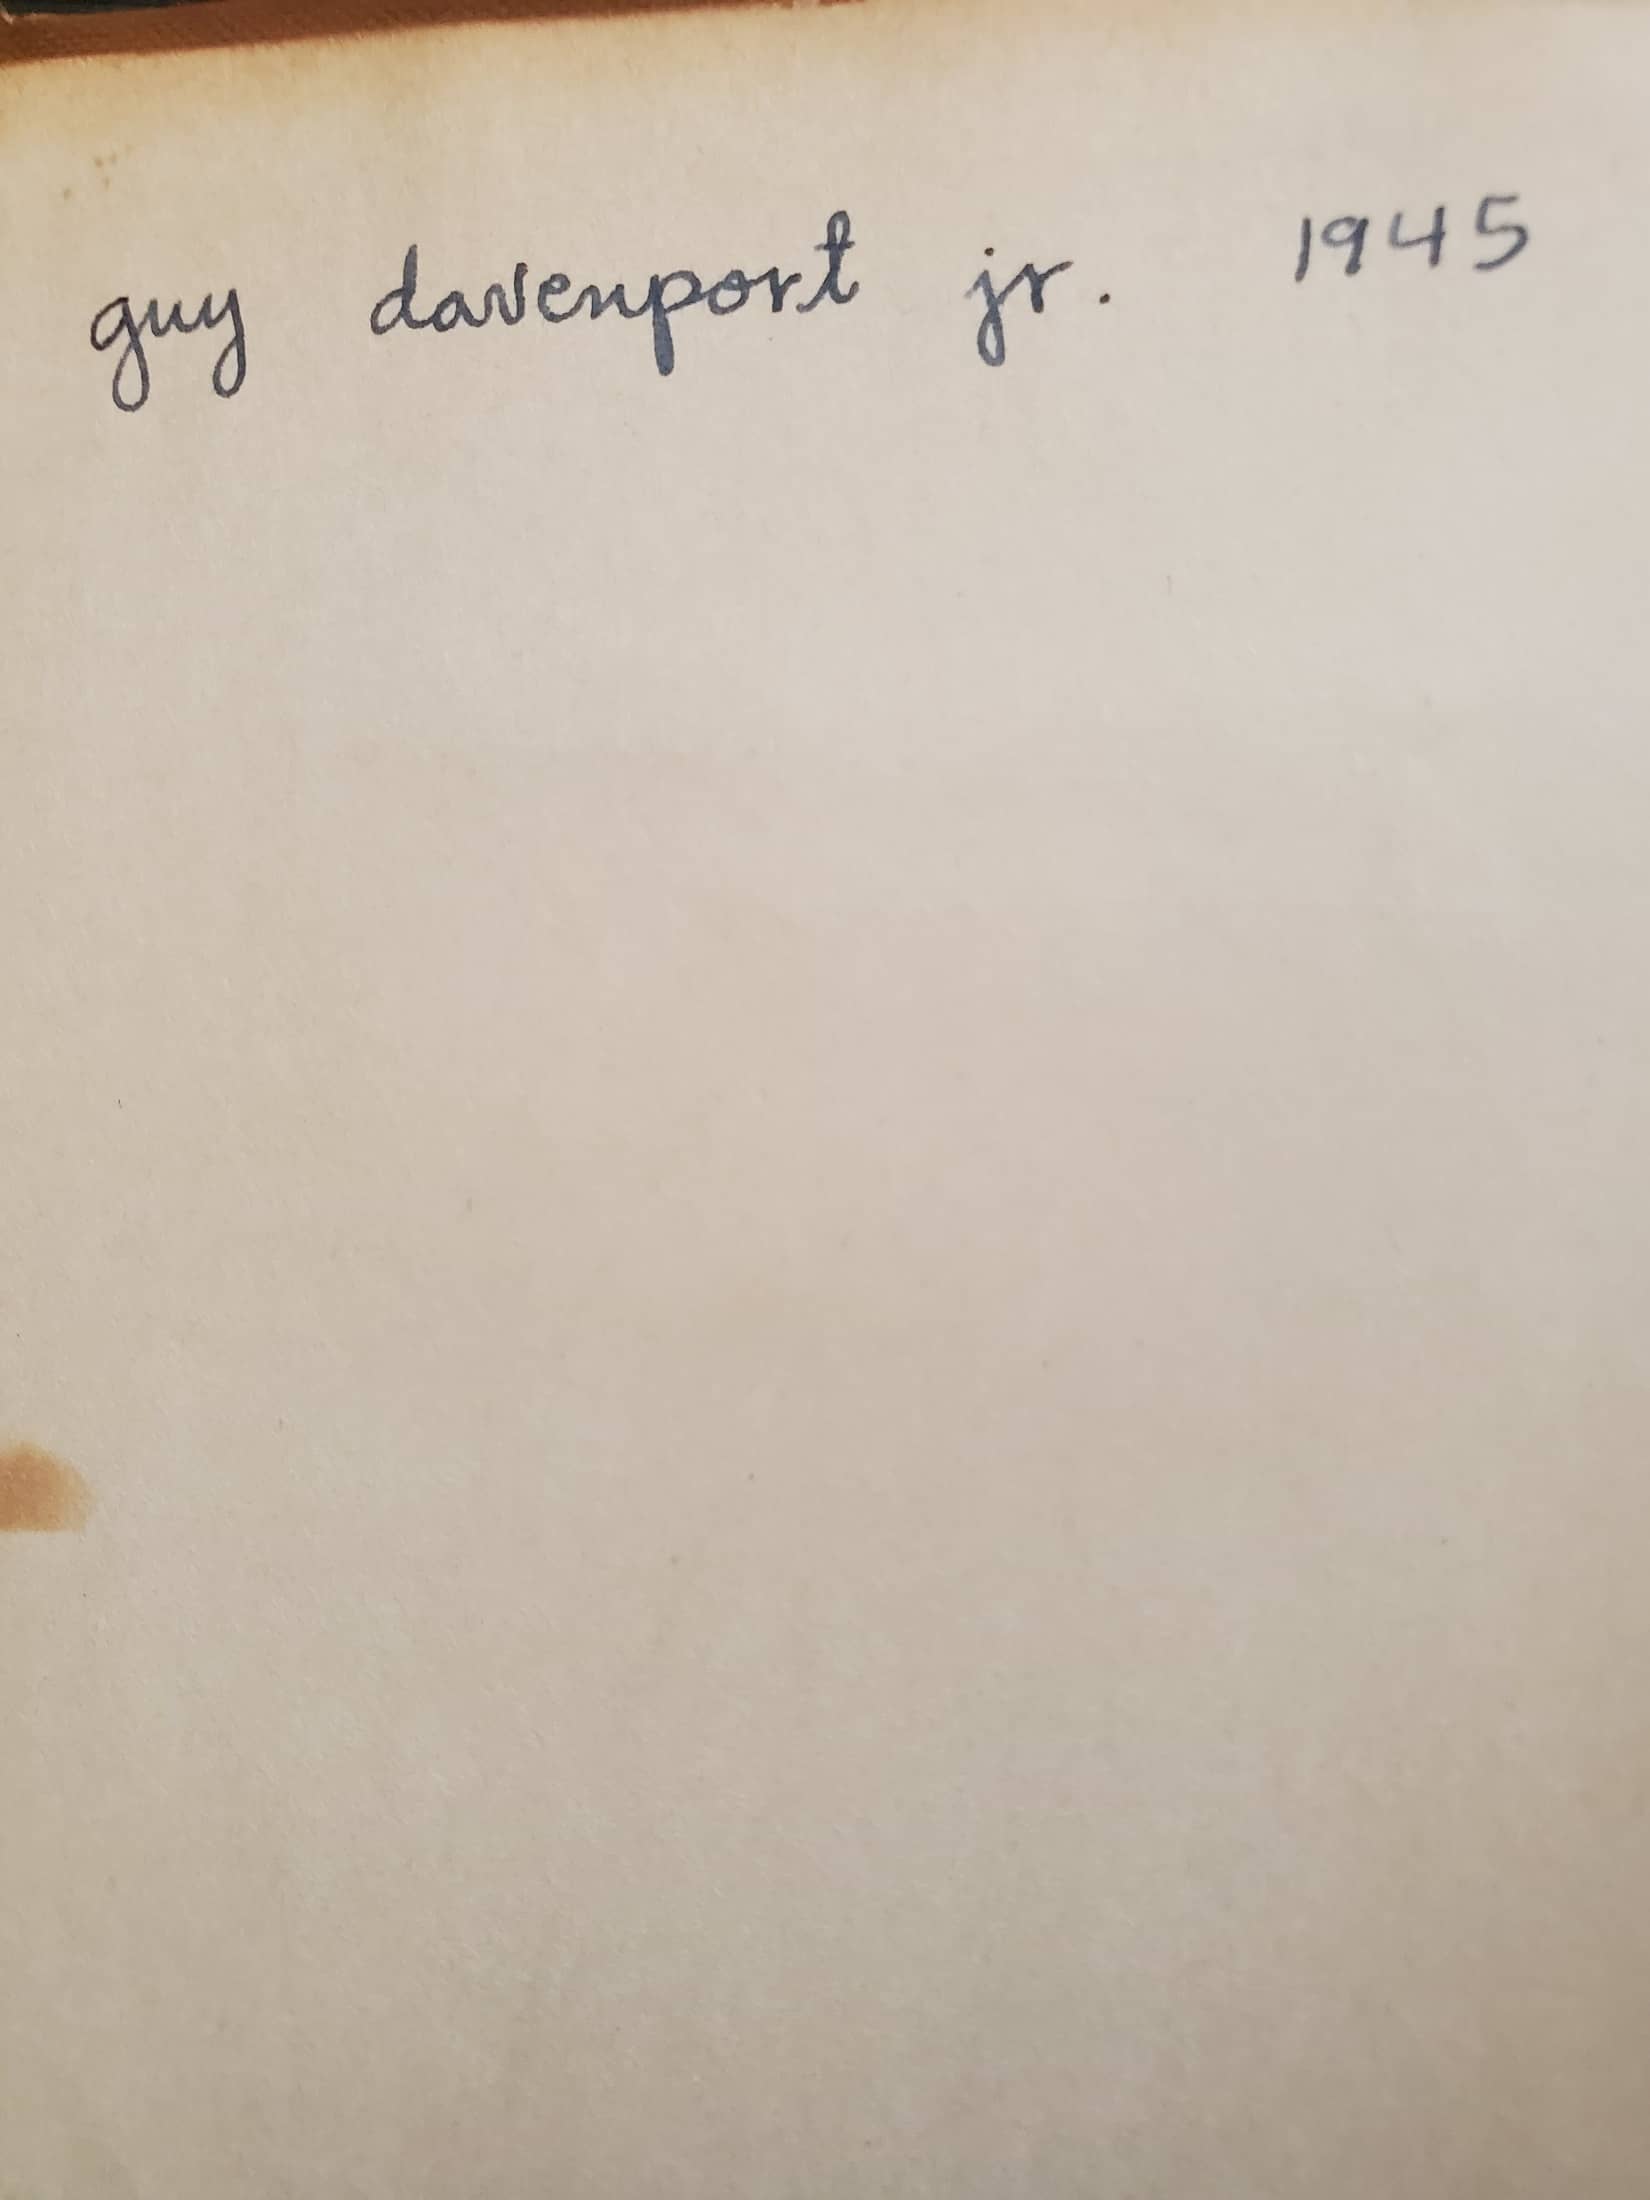 guy davenport jr. 1945